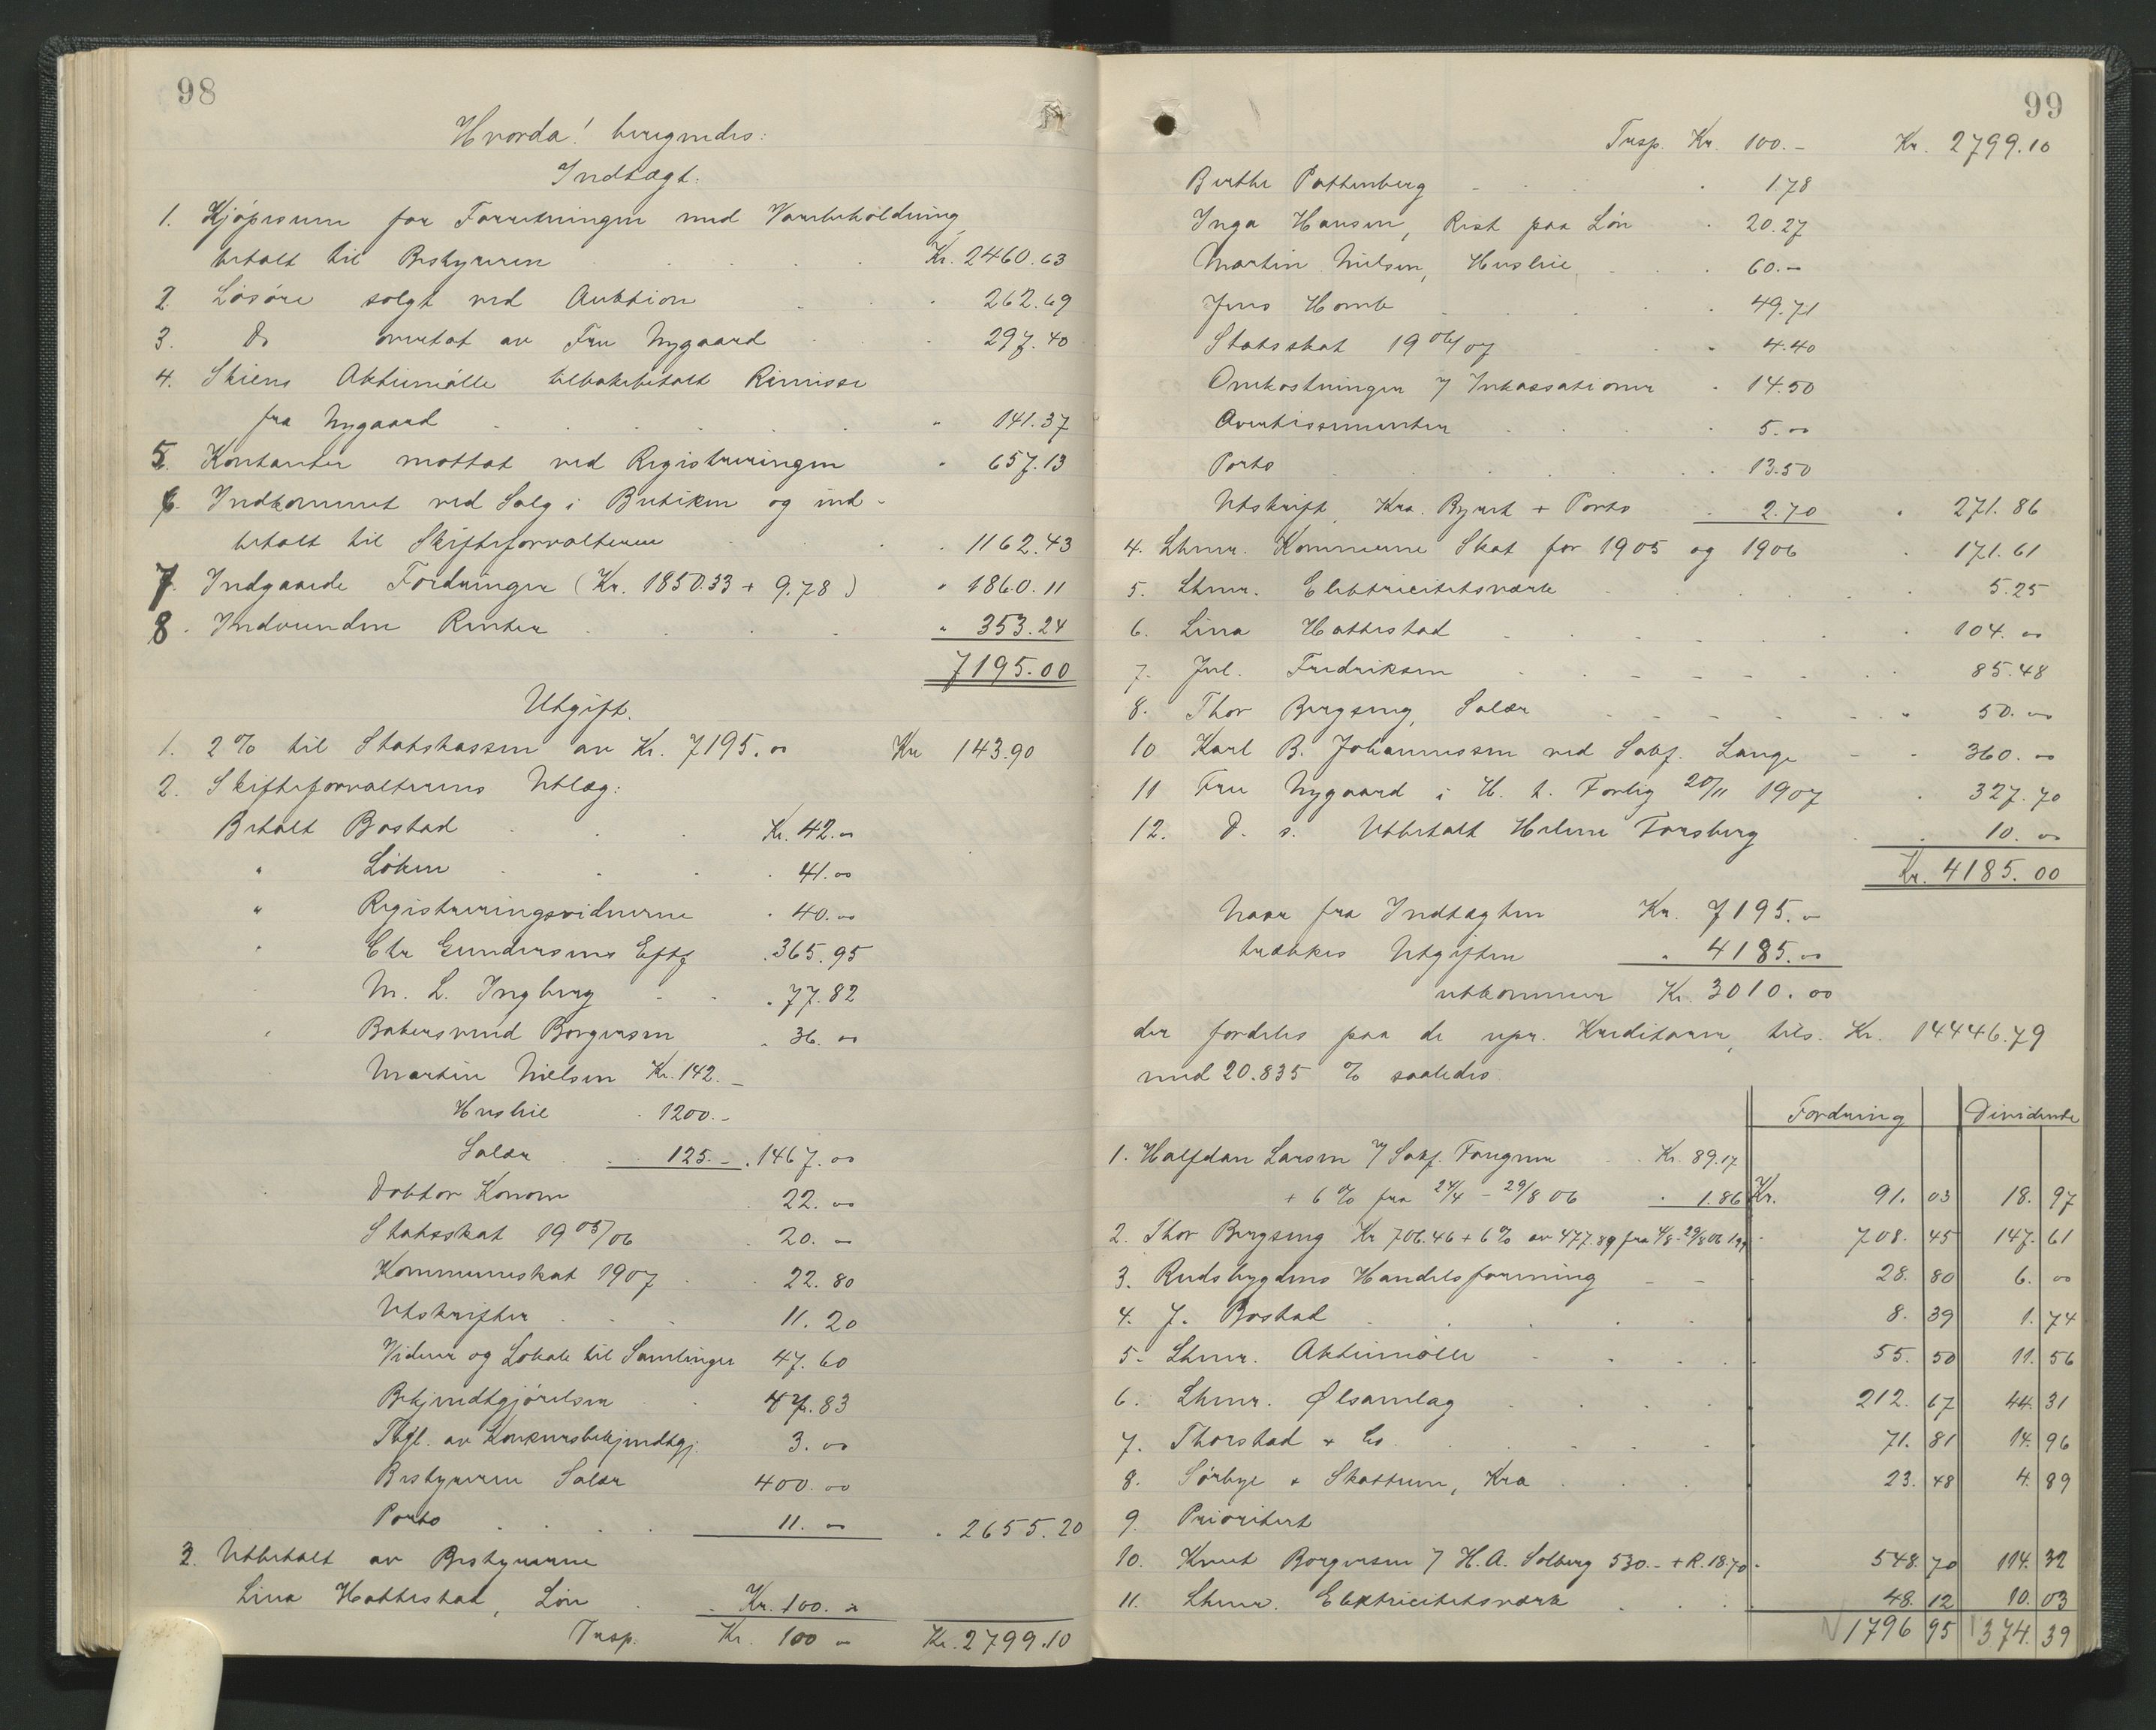 98
Hvorda! beregnedes:
Indtægt:
1. Kjøpesum for Forretningen med Varebeholdning
betalt til Bestyreren Kr. 2460.63
2. Løsøre solgt ved Auktion " 262.69
3. Do overtat av Fru Nygaard " 297.40
4. Skiens Aktiemølle tilbakebetalt Rimisse
fra Nygaard " 141.37
5. Kontanter mottat ved Registreringen " 657.13
6. Indkommet ved Salg i Butiken og ind-
betalt til Skifteforvalteren " 1162.43
7. Indgaaede Fordringer (Kr. 1850.33 + 9.78) " 1860.11
8. Indvundne Renter " 353.24
7195.00
Utgift.
1. 2% til Statskassen av Kr. 7195.00 Kr 143.90
2. Skifteforvalterens Utlæg:
Betalt Bostad Kr. 42.00
" Løken " 41.00
" Registreringsvidnerne " 40.00
" Chr Gundersens Eftf " 365.95
" M. L. Ingberg " 77.82
" Bakersvend Borgersen " 36.00
Martin Nielsen Kr. 142.-
Husleie " 1200.-
Salær " 125.- " 1467.00
Doktor Konow 22.00
Statsskat 1905/06 20.00
Kommuneskat 1907 22.80
Utskrifter 11.20
Vidner og Lokale til Samlinger 47.60
Bekjendtgjørelsen 47.83
Tlgl. av Konkursbekjendtgj. 3.00
Bestyreren Salær 400.00
Porto 11.00 " 2655.20
3. Utbetalt av Bestyrerne
Lina Hattestad, Løn Kr. 100.00
Tnsp. Kr. 100 00 Kr. 2799.10
99
Tnsp. Kr. 100.- Kr. 2799.10
Berthe Pottenberg " 1.78
Inga Hansen, Rest paa Løn " 20.27
Martin Nielsen, Husleie " 60.-
Jens Homb " 49.71
Statsskat 1906/07 " 4.40
Omkostninger v/ Inkassationer " 14.50
Avertissementer " 5.00
Porto " 13.50
Utskrift, Kra. Byret + Porto " 2.70 " 271.86
4. Lhmr. Kommune Skat for 1905 og 1906 " 171.61
5. Lhmr. Elektricitetsværk " 5.25
6. Lina Hattestad " 104.00
7. Jul. Fredriksen " 85.48
8. Thor Bergseng, Salær " 50.00
10 Karl B. Johannessen ved Sakf. Lange " 360.00
11 Fru Nygaard i H. t. Forlig 20/11 1907 " 327.70
12. D. s. Utbetalt Helene Forsberg " 10.00
Kr. 4185.00
Naar fra Indtægten Kr. 7195.-
trækkes Utgiften " 4185.00
utkommer Kr. 3010.00
der fordeles paa de upr. Kreditorer, tils. Kr. 14446.79
med 20.835 % saaledes
Fordring Dividende
1. Halfdan Larsen v/ Sakf. Fougner Kr. 89.17
+ 6% fra 24/4 - 29/8 06 " 1.86 Kr. 91.03 18.97
2. Thor Bergseng Kr 706.46 + 6% av 477.89 fra 4/8-29/8 06 1.99 " 708.45 147.61
3. Rudsbygdens Handelsforening 28.80 6.00
4. J. Bostad 8.39 1.74
5. Lhmr. Aktiemølle 55.50 11.56
6. Lhmr. Ølsamlag 212.67 44.31
7. Thorstad + Co. 71.81 14.96
8. Sørbye + Skattum, Kra 23.48 4.89
9. Prioritert
10. Knut Borgersen v/ H.A. Solberg 530.- + R. 18.70 548.70 114.32
11. Lhmr. Elektricitetsværk 48.12 10.03
1796 95 374.39